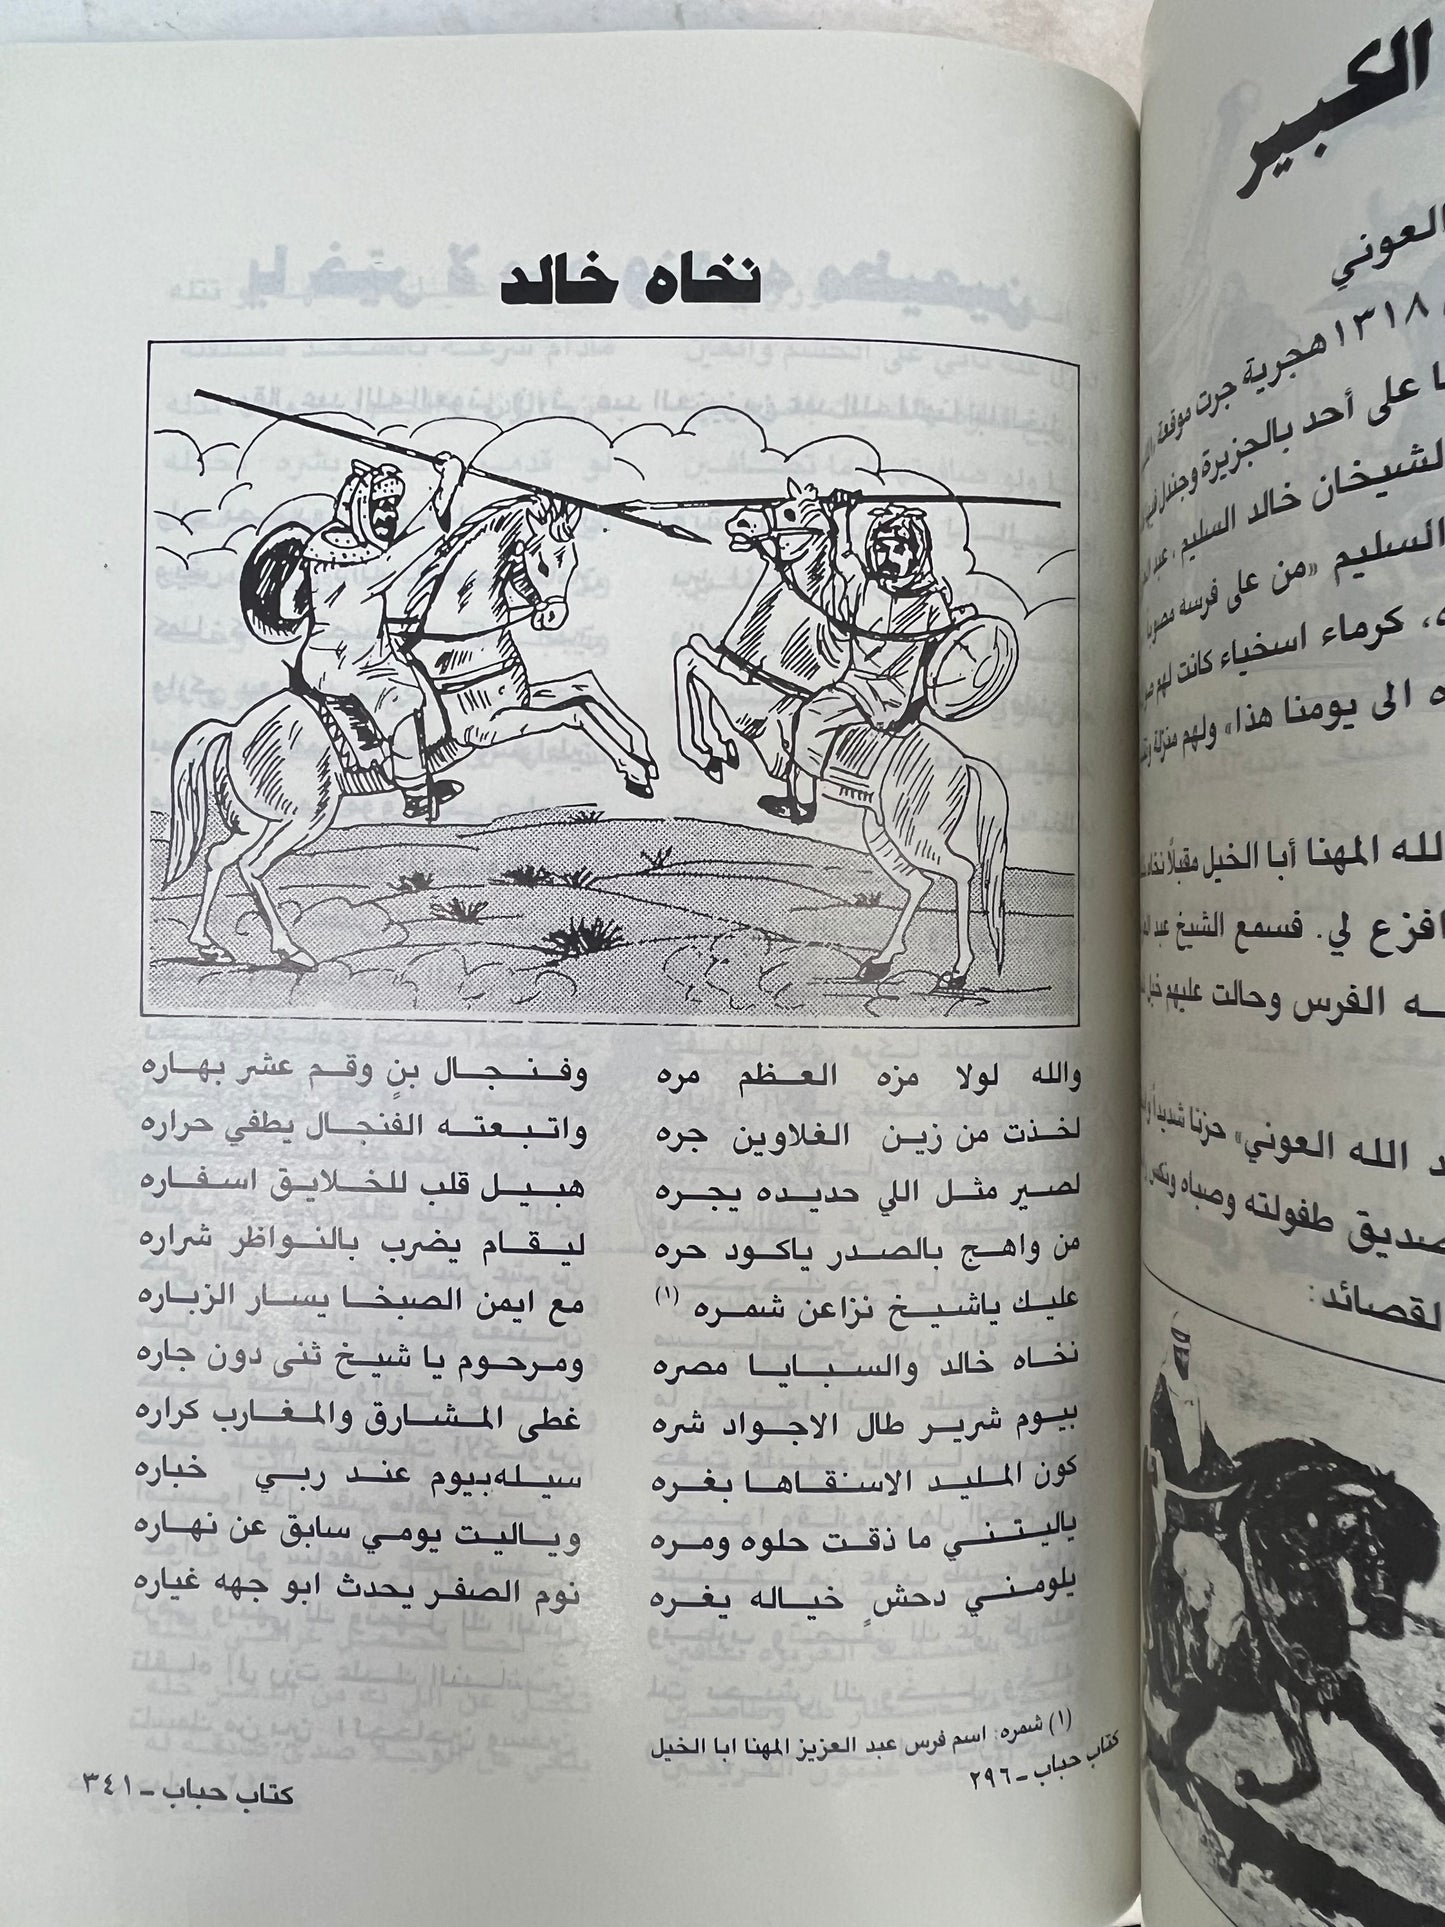 نخاه خالد
والله لولا مزه العظم مره وفنجال بنٍ وقم عشر بهاره
لخذت من زين الغلاوين جره واتبعته الفنجال يطفي حراره
لصير مثل اللي حديده يجره هبيل قلب للخلايق اسفاره
من واهج بالصدر ياكود حره ليقام يضرب بالنواظر شراره
عليك ياشيخ نزاعن شمره (١) مع ايمن الصبخا يسار الزباره
نخاه خالد والسبايا مصره ومرحوم يا شيخ ثنى دون جاره
بيوم شرير طال الاجواد شره غطى المشارق والمغارب كراره
كون المليد الاسنقاها بغره سيله بيوم عند ربي خباره
ياليتني ما ذقت حلوه ومره وياليت يومي سابق عن نهاره
يلومني دحشٍ خياله يغره نوم الصفر يحدث ابو جهه غياره
(١) شمره: اسم فرس عبد العزيز المهنا ابا الخيل
كتاب حباب ـ ٢٩٦
كتاب حباب ـ ٣٤١
الكبير
العوني
١٣١٨ هجرية جرت موقعة
على أحد بالجزيرة وجندل
الشيخان خالد السليم، عبد
السليم «من على فرسه
كرماء اسخياء كانت لهم
الى يومنا هذا» ولهم منزلة
المهنا أبا الخيل مقبلًا
افزع لي. فسمع الشيخ عبد
الفرس وحالت عليهم خيل
الله العوني» حزنا شديداً
صديق طفولته وصباه
القصائد: